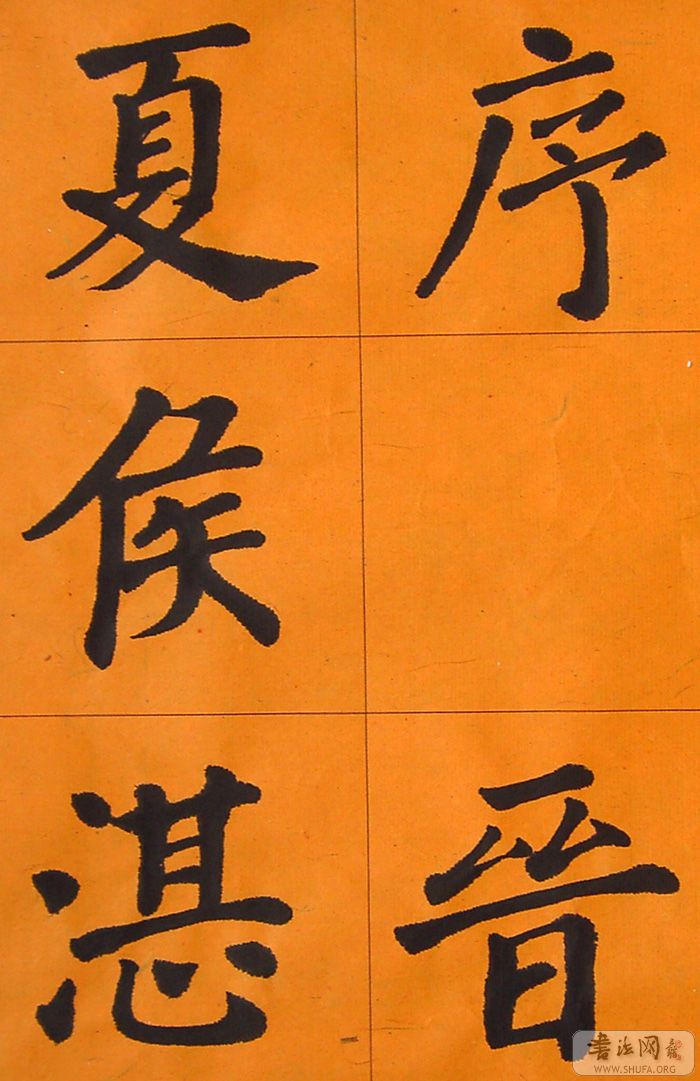 序 晉
夏侯湛
書法网
WWW.SHUFA.ORG